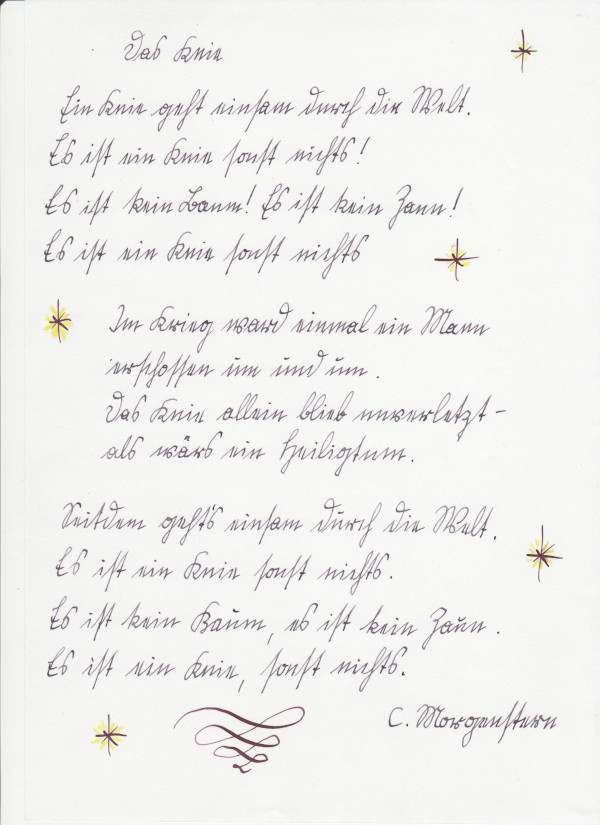 Das Knie
Ein Knie geht einsam durch die Welt.
Es ist ein Knie sonst nichts!
Es ist kein Baum! Es ist kein Zaun!
Es ist ein Knie sonst nichts
Im Krieg ward einmal ein Mann
erschossen um und um.
Das Knie allein blieb unverletzt -
als wärs ein Heiligtum.
Seitdem geht's einsam durch die Welt.
Es ist ein Knie sonst nichts.
Es ist kein Baum, es ist kein Zaun.
Es ist ein Knie, sonst nichts.
C. Morgenstern